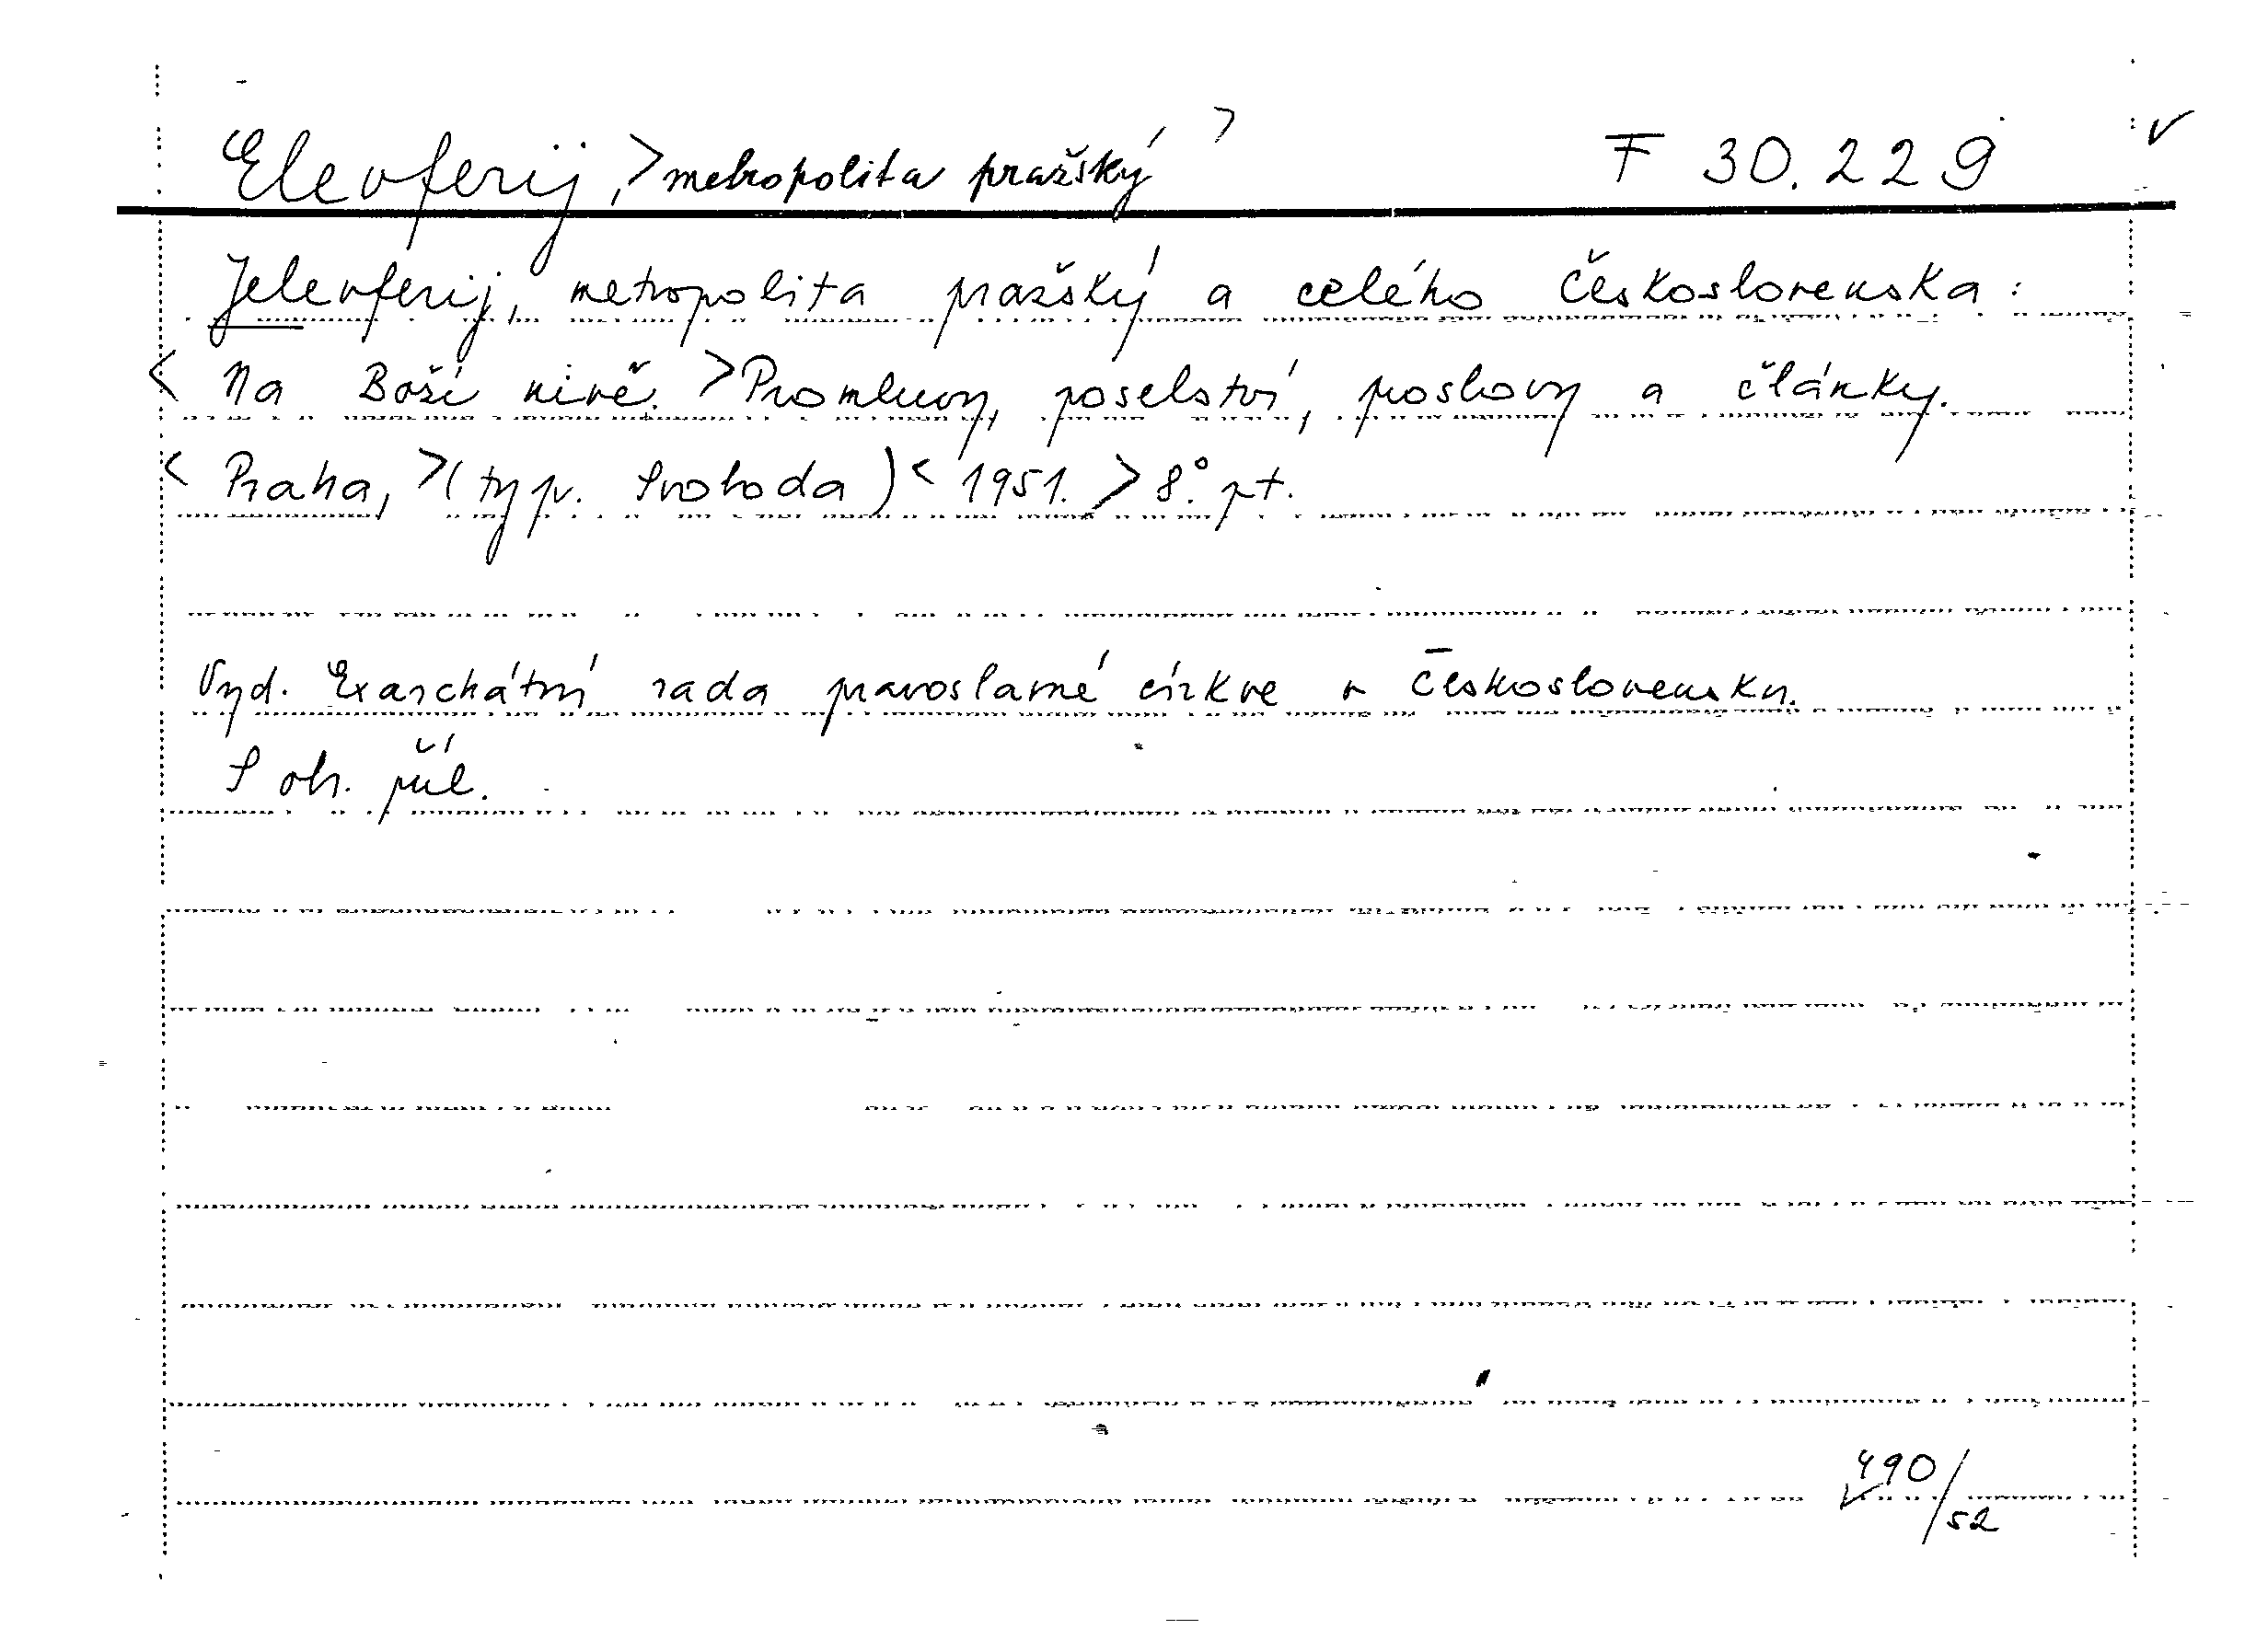 Elevferij, > metropolita pražský > F 30.229 ✓
Jelevferij, metropolita pražský a celého Československa:
< Na Boží nivě. > Promluvy, poselství, proslovy a články.
< Praha, > (typ. Svoboda) < 1951. > 8°. pt.
Vyd. Exarchátní rada pravoslavné církve v Československu.
S obr. příl.
490/52